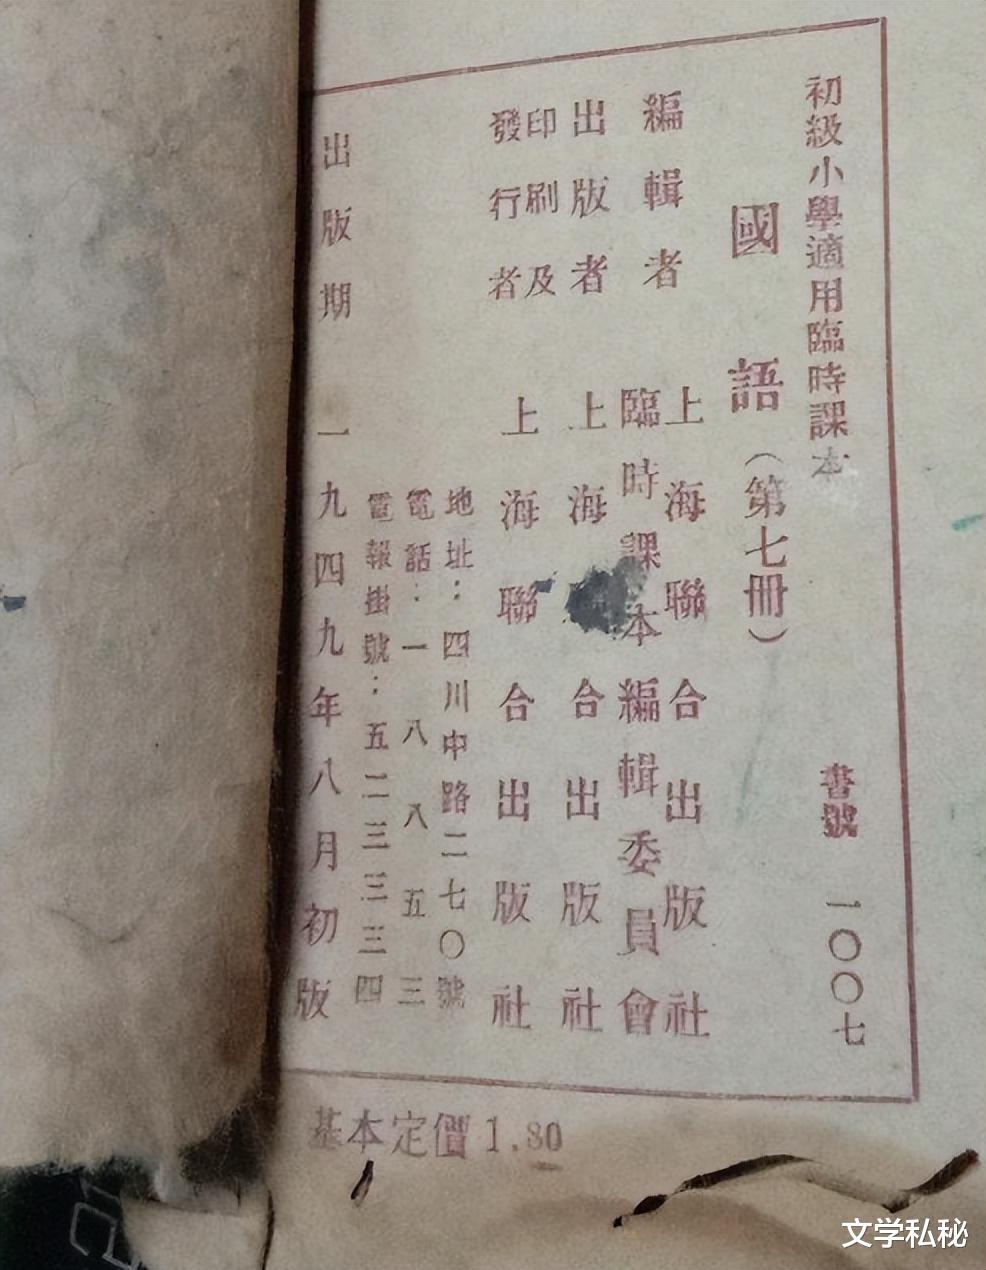 初級小學適用臨時課本
書號 一〇〇七
國語（第七冊）
編輯者
上海聯合出版社
臨時課本編輯委員會
出版者 上海聯合出版社
印刷及
發行者 上海聯合出版社
地址：四川中路二七〇號
電話：一八八五三
電報掛號：五二三三三四
出版期 一九四九年八月初版
基本定價 1.80
文学私秘